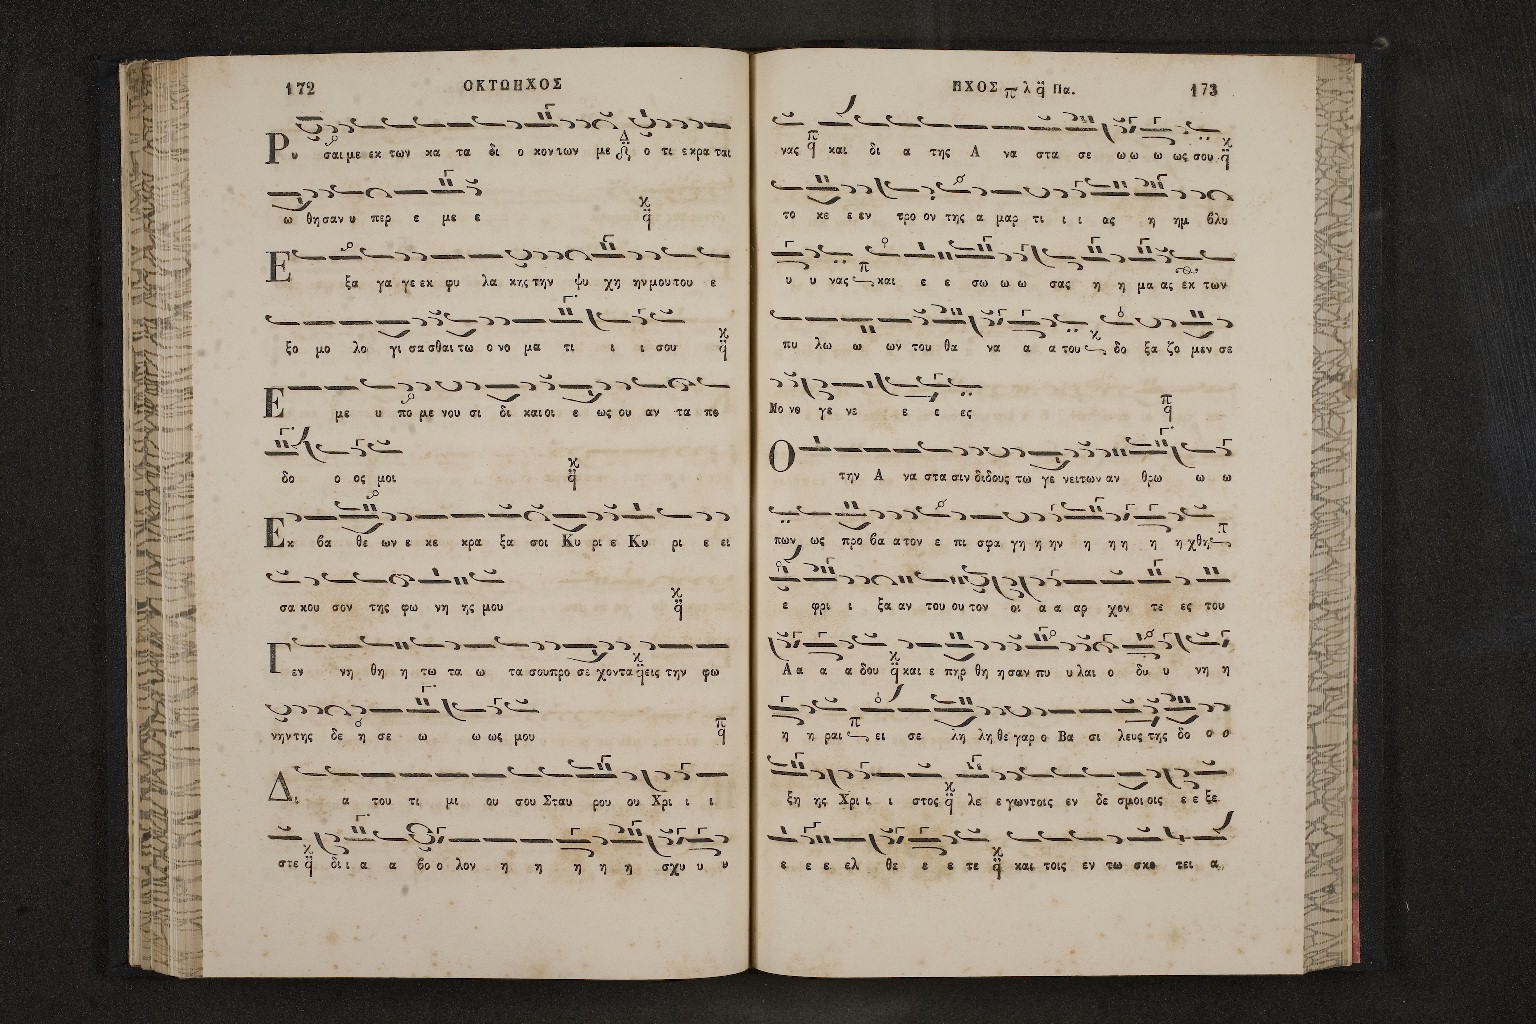 172 ΟΚΤΩΗΧΟΣ
Ρυ σαι με εκ των κα τα δι ο κον των με ο τι ε κρα ται
ω θη σαν υ περ ε με ε
Ε ξα γα γε εκ φυ λα κης την ψυ χη ην μου του ε
ξο μο λο γι σα σθαι τω ο νο μα τι ι ι σου
Ε με υ πο με νου σι δι και οι ε ως ου αν τα πο
δο ο ος μοι
Εκ βα θε ων ε κε κρα ξα σοι Κυ ρι ε Κυ ρι ε ει
σα κου σον της φω νη ης μου
Γεν νη θη η τω τα ω τα σου προ σε χον τα εις την φω
νην της δε η σε ω ω ως μου
Δι α του τι μι ου σου Σταυ ρου ου Χρι ι ι
στε δι ι α α βο ο λον η η η η η σχυ υ υ
ΗΧΟΣ πλ q Πα. 173
νας και δι α της Α να στα σε ω ω ω ως σου
το κε ε εν τρο ον της α μαρ τι ι ι ας η ημ βλυ
υ υ νας και ε ε σω ω ω σας η η μα ας εκ των
πυ λω ω ων του θα να α α του δο ξα ζο μεν σε
Μο νο γε νε ε ε ες
Ο την Α να στα σιν διδους τω γε νει των αν θρω ω ω
πων ως προ βα α τον ε πι σφα γη η ην η η η η η χθης
ε φρι ι ξα αν του ου τον οι α α αρ χον τε ες του
Α α α α δου και ε πηρ θη η σαν πυ υ λαι ο δυ υ νη η
η η ραι ει σε λη λη θε γαρ ο Βα σι λευς της δο ο ο
ξη ης Χρι ι ι στος λε ε γων τοις εν δε σμοι οις ε ε ξε
ε ε ε ελ θε ε ε τε και τοις εν τω σκο τει α